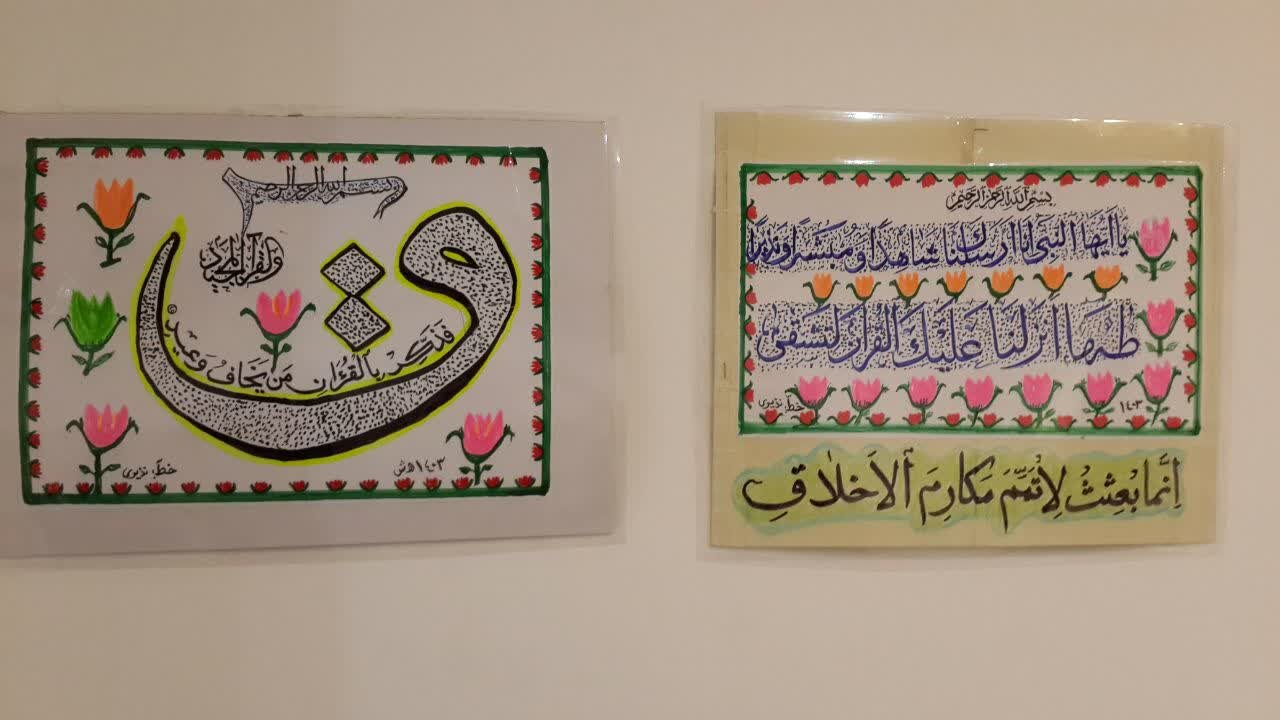 بسم الله الرحمن الرحیم
ق
والقرآن المجید
فَذَكِّرْ بِالْقُرْآنِ مَن يَخَافُ وَعِيدِ
خط: نژیری
۱۴۰۳ ه‍ ش
بسم الله الرحمن الرحیم
یا ایها النبی انا ارسلناک شاهدًا و مبشرًا و نذیرًا
طه ما انزلنا علیک القرآن لتشقی
خط: نژیری
۱۴۰۳
اِنَّمَا بُعِثْتُ لِاُتَمِّمَ مَكَارِمَ ٱلاَخْلَاقِ